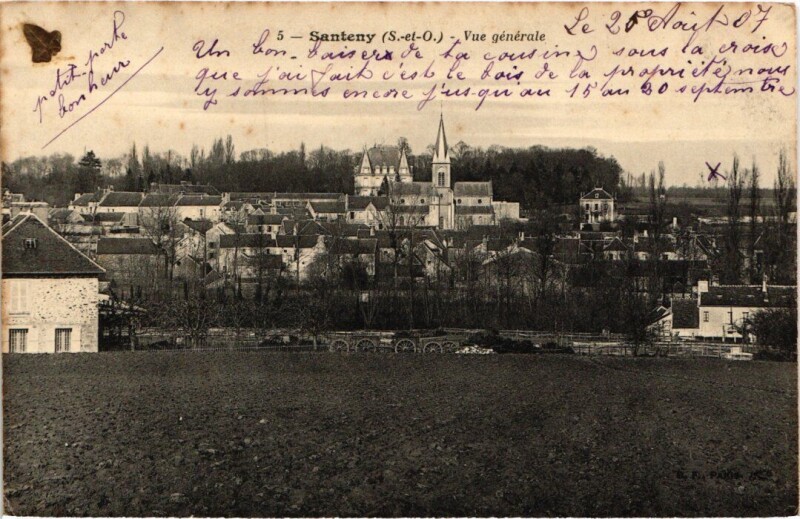 Le 25 Août 07
5 — Santeny (S.-et-O.) - Vue générale
Un bon baiser de ta cousine sous la croix
que j'ai fait c'est le bois de la propriété nous
y sommes encore jusqu'au 15 au 20 septembre
petit porte
bonheur